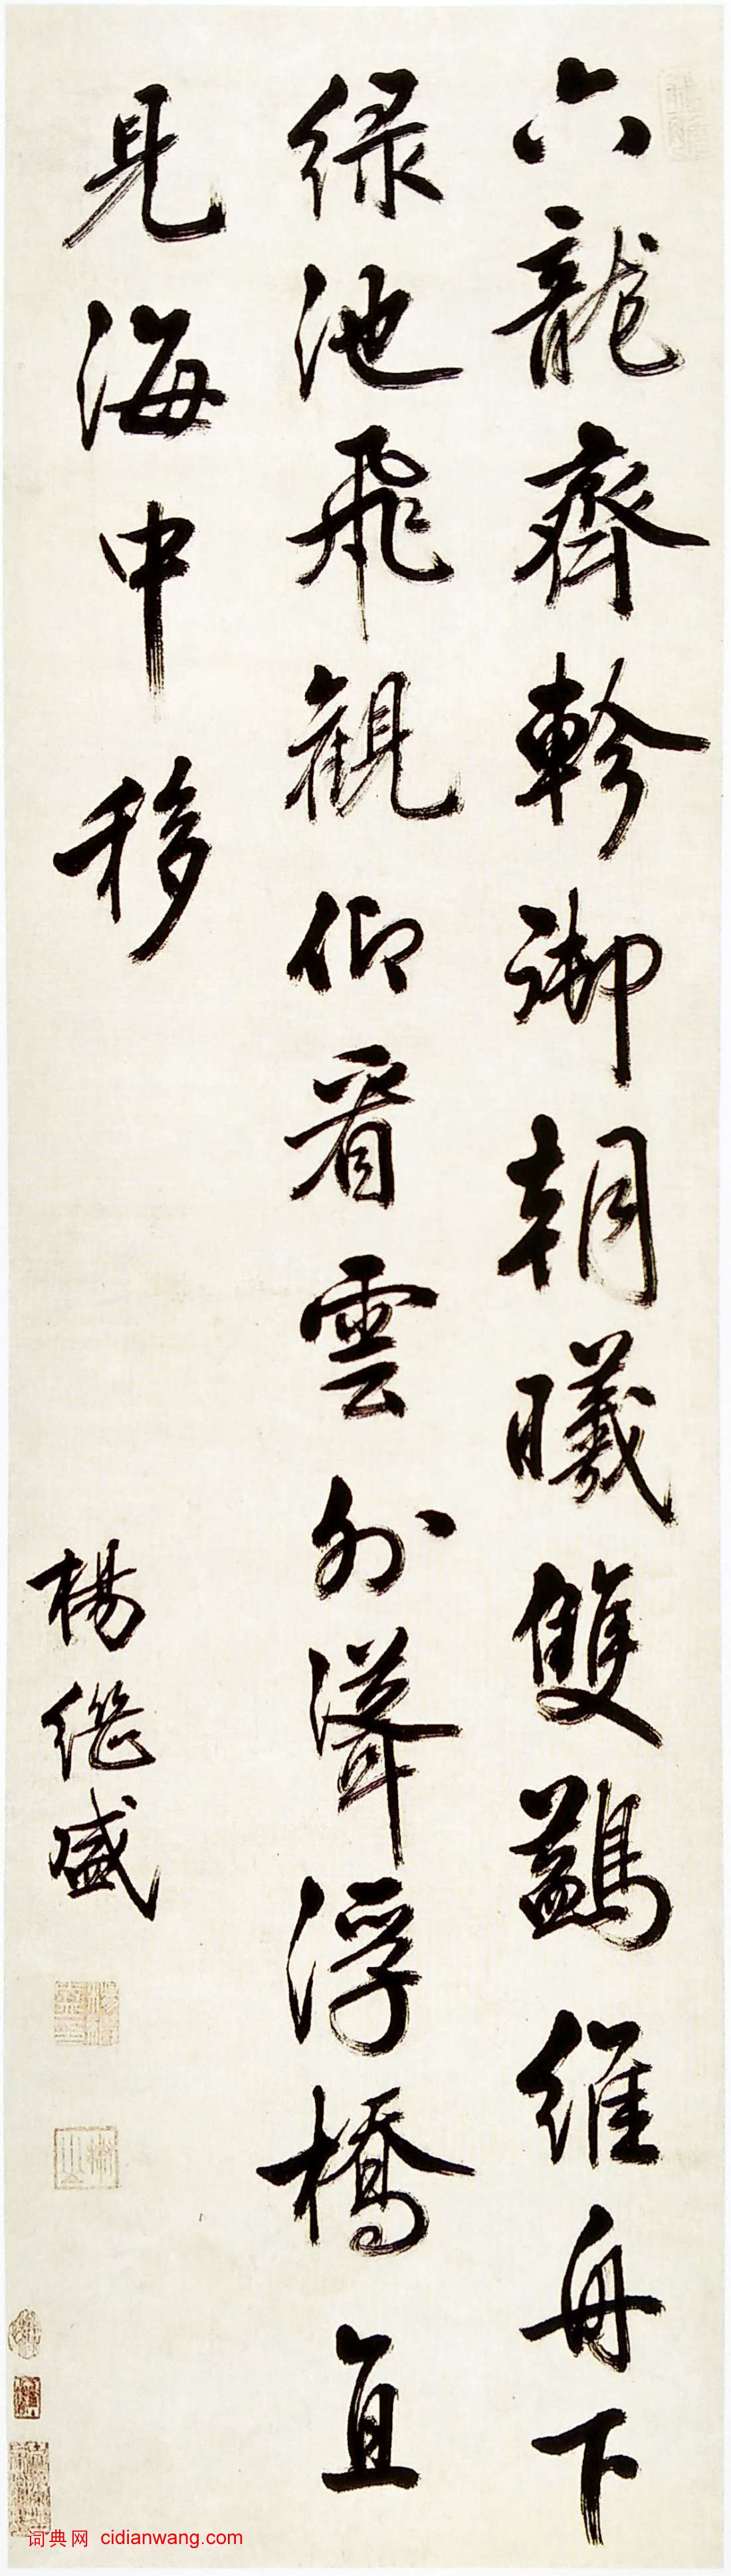 六龍齊軫御朝曦雙鷁維舟下
绿池飛觀仰看雲外聳浮橋直
見海中移
楊继盛
词典网 cidianwang.com